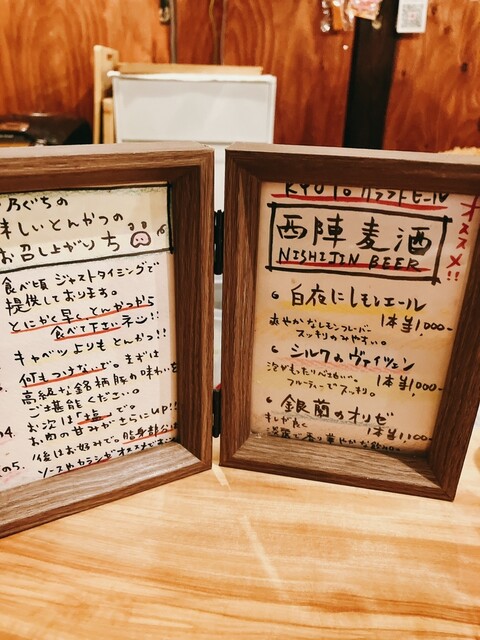 乃ぐちの
味しいとんかつの
お召し上がり方
食べ頃 ジャストタイミングで
提供しております。
とにかく早くとんかつから
食べて下さいネシ!!
キャベツよりもとんかつ!!
何もつけないで。まずは
高級な銘柄豚の味わいを
ご堪能ください。
お次は「塩」で。
お肉の甘みがさらにUP!!
後はお好みで。脂身部分は
ソースやカラシがオススメです
04.
の5.
KYOTO クラフトビール
オススメ!!
西陣麦酒
NISHIJIN BEER
白夜にレモンエール
1本¥1,000-
爽やかなレモンフレーバー
スッキリのみやすい。
シルクのヴァイツェン
1本¥1,000-
フルーティーでスッキリ。
銀蘭のオリゼ
1本¥1,100-
キレが良く